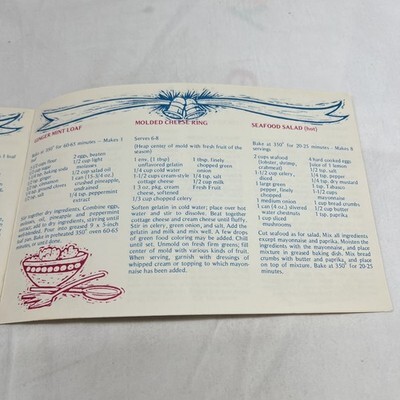 GINGER MINT LOAF
Bake at 350° for 60-65 minutes - Makes 1
2 eggs, beaten
1/2 cup light
molasses
1/2 cup salad oil
1 can (15-3/4 oz.)
crushed pineapple,
undrained
1/4 tsp. peppermint
extract
baking soda
ground cloves
dry ingredients. Combine eggs,
oil, pineapple and peppermint
extract, add to dry ingredients, stirring until
Pour into greased 9 x 5-inch
Bake in preheated 350° oven 60-65
or until done.
MOLDED CHEESE RING
Serves 6-8
(Heap center of mold with fresh fruit of the
season)
1 env. (1 tbsp)
unflavored gelatin
1/4 cup cold water
1-1/2 cups cream-style
cottage cheese
1 3 oz. pkg. cream
cheese, softened
1/3 cup chopped celery
1 tbsp. finely
chopped green
onion
1/4 tsp. salt
1/2 cup milk
Fresh Fruit
Soften gelatin in cold water; place over hot
water and stir to dissolve. Beat together
cottage cheese and cream cheese until fluffy.
Stir in celery, green onion, and salt. Add the
gelatin and milk and mix well. A few drops
of green food coloring may be added. Chill
until set. Unmold on fresh firm greens; fill
center of mold with various kinds of fruit.
When serving, garnish with dressings of
whipped cream or topping to which mayon-
naise has been added.
SEAFOOD SALAD (hot)
Bake at 350° for 20-25 minutes. Makes 8
servings.
2 cups seafood
(lobster, shrimp,
crabmeat)
1-1/2 cup celery,
diced
1 large green
pepper, finely
chopped
1 medium onion
1 can (4 oz.) slivered
water chestnuts
1 cup
mushrooms
4 hard cooked eggs
juice of 1 lemon
1/2 tsp. salt
1/4 tsp. pepper
1/4 tsp. dry mustard
1 tsp. Tabasco
1-1/2 cups
mayonnaise
1 cup bread crumbs
1/2 cup butter
1 tsp. paprika
Cut seafood as for salad. Mix all ingredients
except mayonnaise and paprika. Moisten the
ingredients with the mayonnaise, and place
in greased baking dishes. Mix bread
crumbs with butter and paprika, and place
on top of mixture. Bake at 350° for 20-25
minutes.